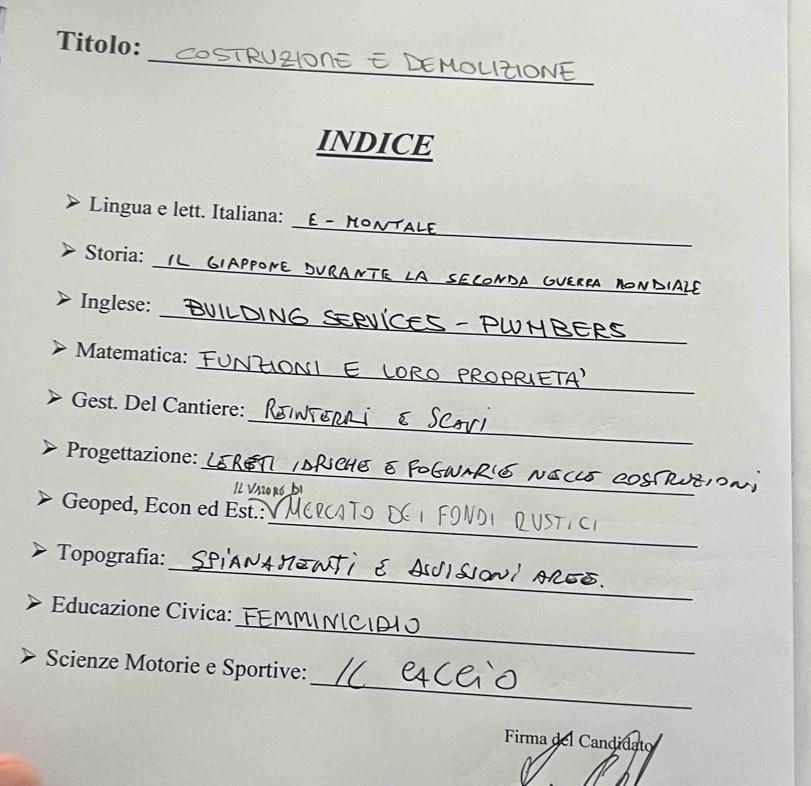 Titolo: COSTRUZIONE E DEMOLIZIONE
INDICE
➢ Lingua e lett. Italiana: E - MONTALE
➢ Storia: IL GIAPPONE DURANTE LA SECONDA GUERRA MONDIALE
➢ Inglese: BUILDING SERVICES - PLUMBERS
➢ Matematica: FUNZIONI E LORO PROPRIETA'
➢ Gest. Del Cantiere: REINTERRI E SCAVI
➢ Progettazione: LE RETI IDRICHE E FOGNARIE NELLE COSTRUZIONI
IL VALORE DI
➢ Geoped, Econ ed Est.: MERCATO DEI FONDI RUSTICI
➢ Topografia: SPIANAMENTI E DIVISIONI AREE.
➢ Educazione Civica: FEMMINICIDIO
➢ Scienze Motorie e Sportive: IL CALCIO
Firma del Candidato